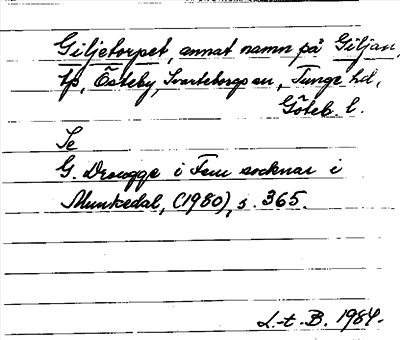 Giljetorpet, annat namn på Giljan,
tp, Östeby, Svarteborgs sn, Tunge hd,
Göteb. l.
Se
G. Drougge i Fem socknar i
Munkedal, (1980), s. 365.
L.-t. B. 1984.